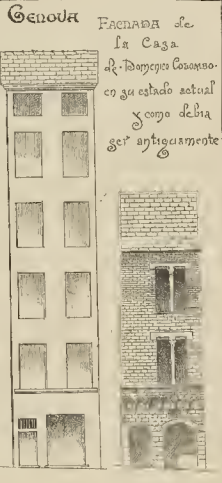 Genova
Fachada de
la Casa
de Domenico Colombo
en su estado actual
y como debia
ser antiguamente